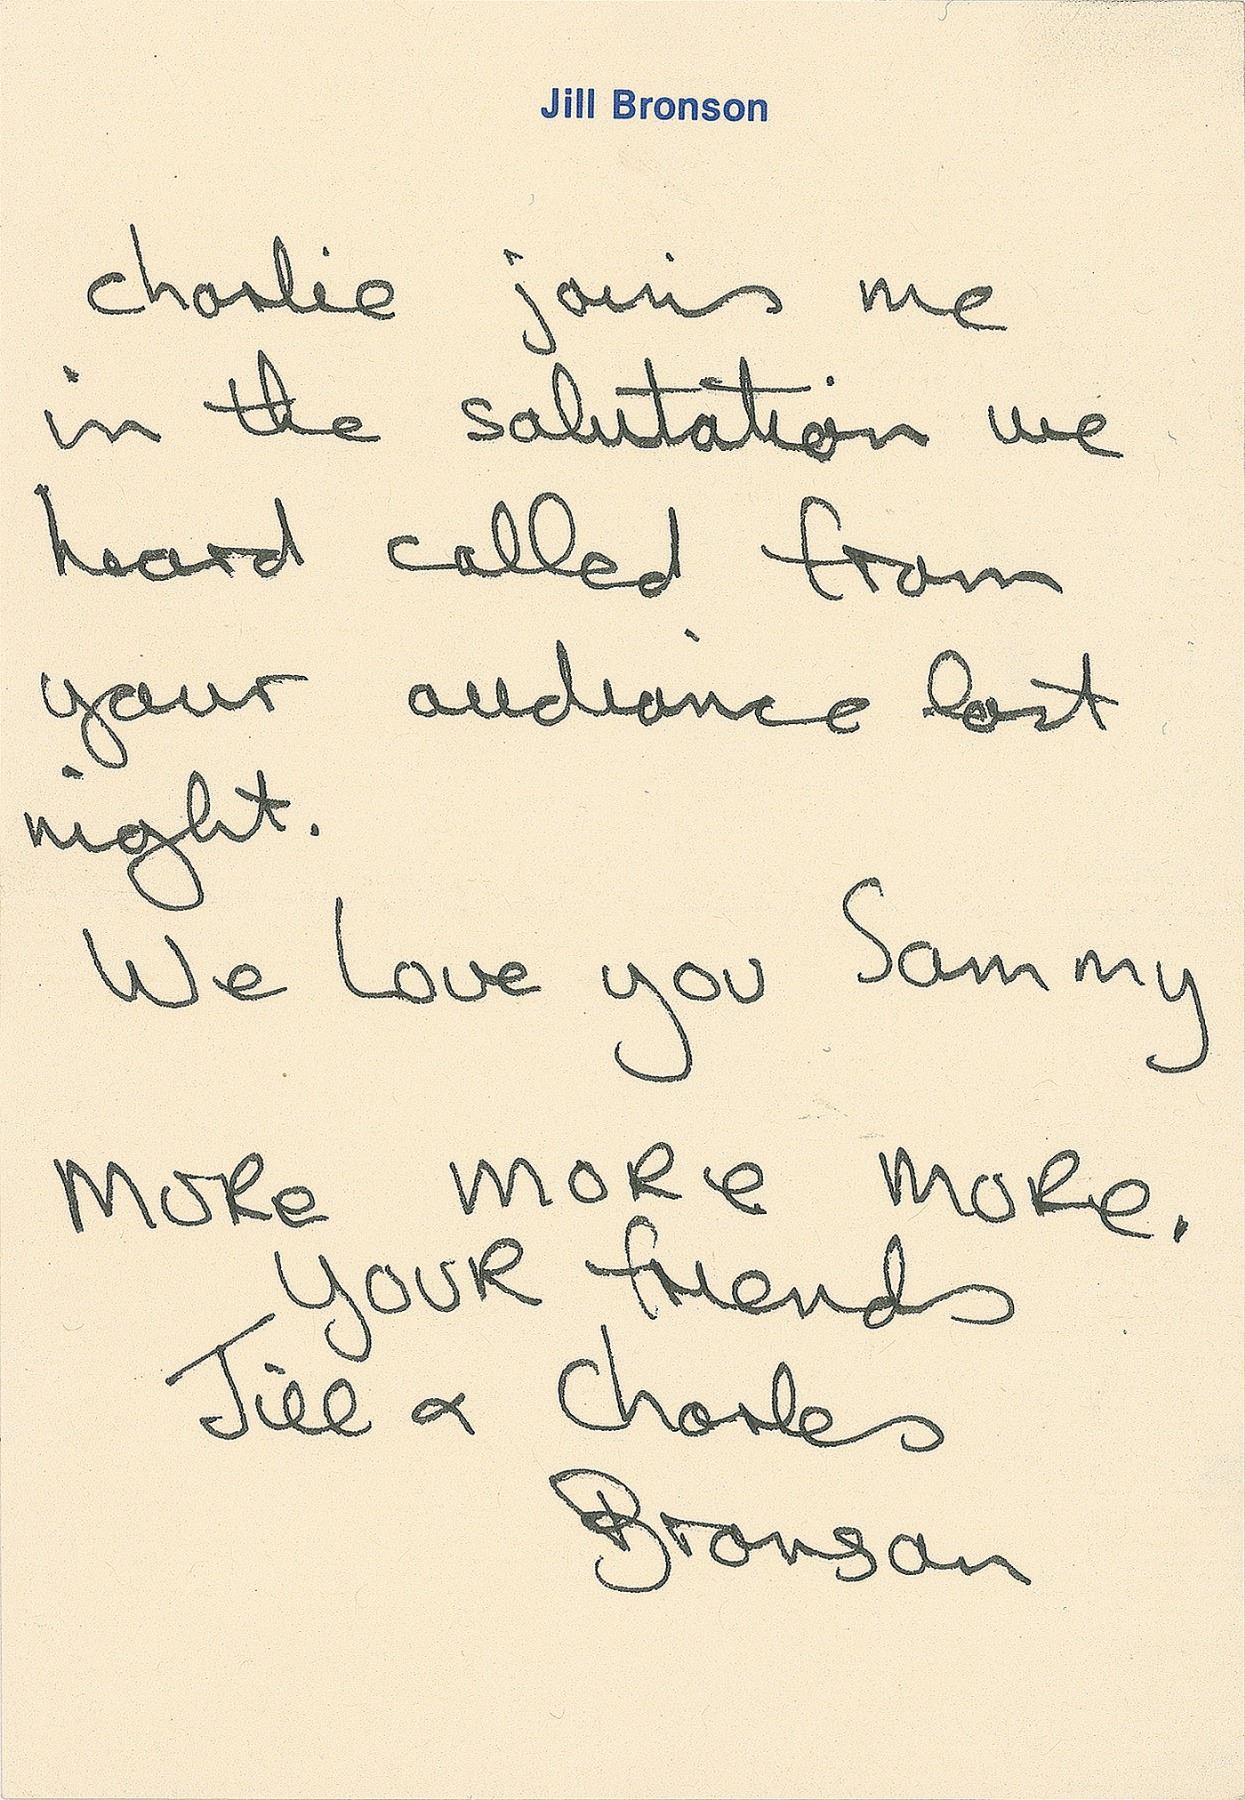 Jill Bronson
charlie joins me
in the salutation we
heard called from
your audiance last
night.
We Love you Sammy
MORe MORe MORe.
YOUR friends
Jill & Charles
Bronson